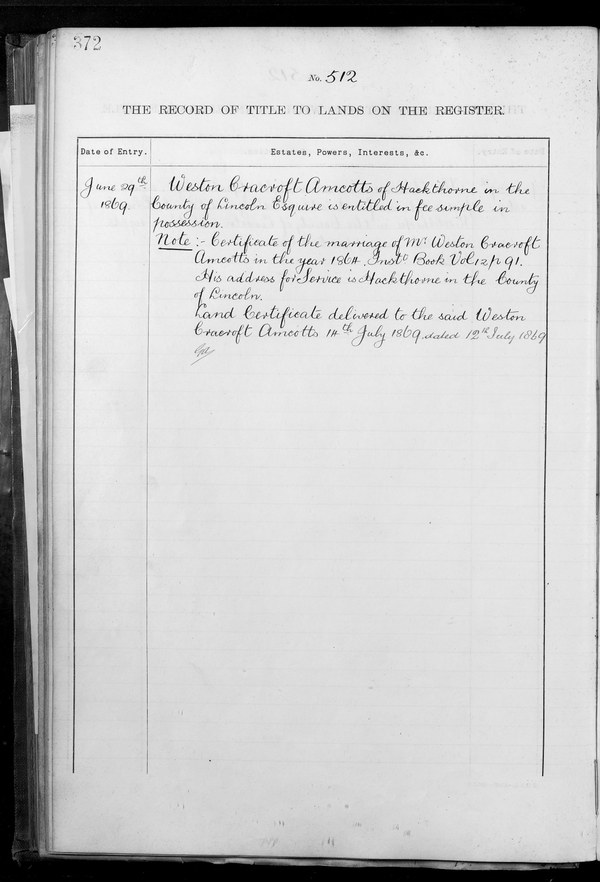 372
No. 512
THE RECORD OF TITLE TO LANDS ON THE REGISTER.
Date of Entry. Estates, Powers, Interests, &c.
June 29th Weston Cracroft Amcotts of Hackthorne in the
1869. County of Lincoln Esquire is entitled in fee simple in
possession.
Note :- Certificate of the marriage of Mr. Weston Cracroft
Amcotts in the year 1864. Insto Book Vol 12 p 91.
His address for Service is Hackthorne in the County
of Lincoln.
Land Certificate delivered to the said Weston
Cracroft Amcotts 14th July 1869. dated 12th July 1869